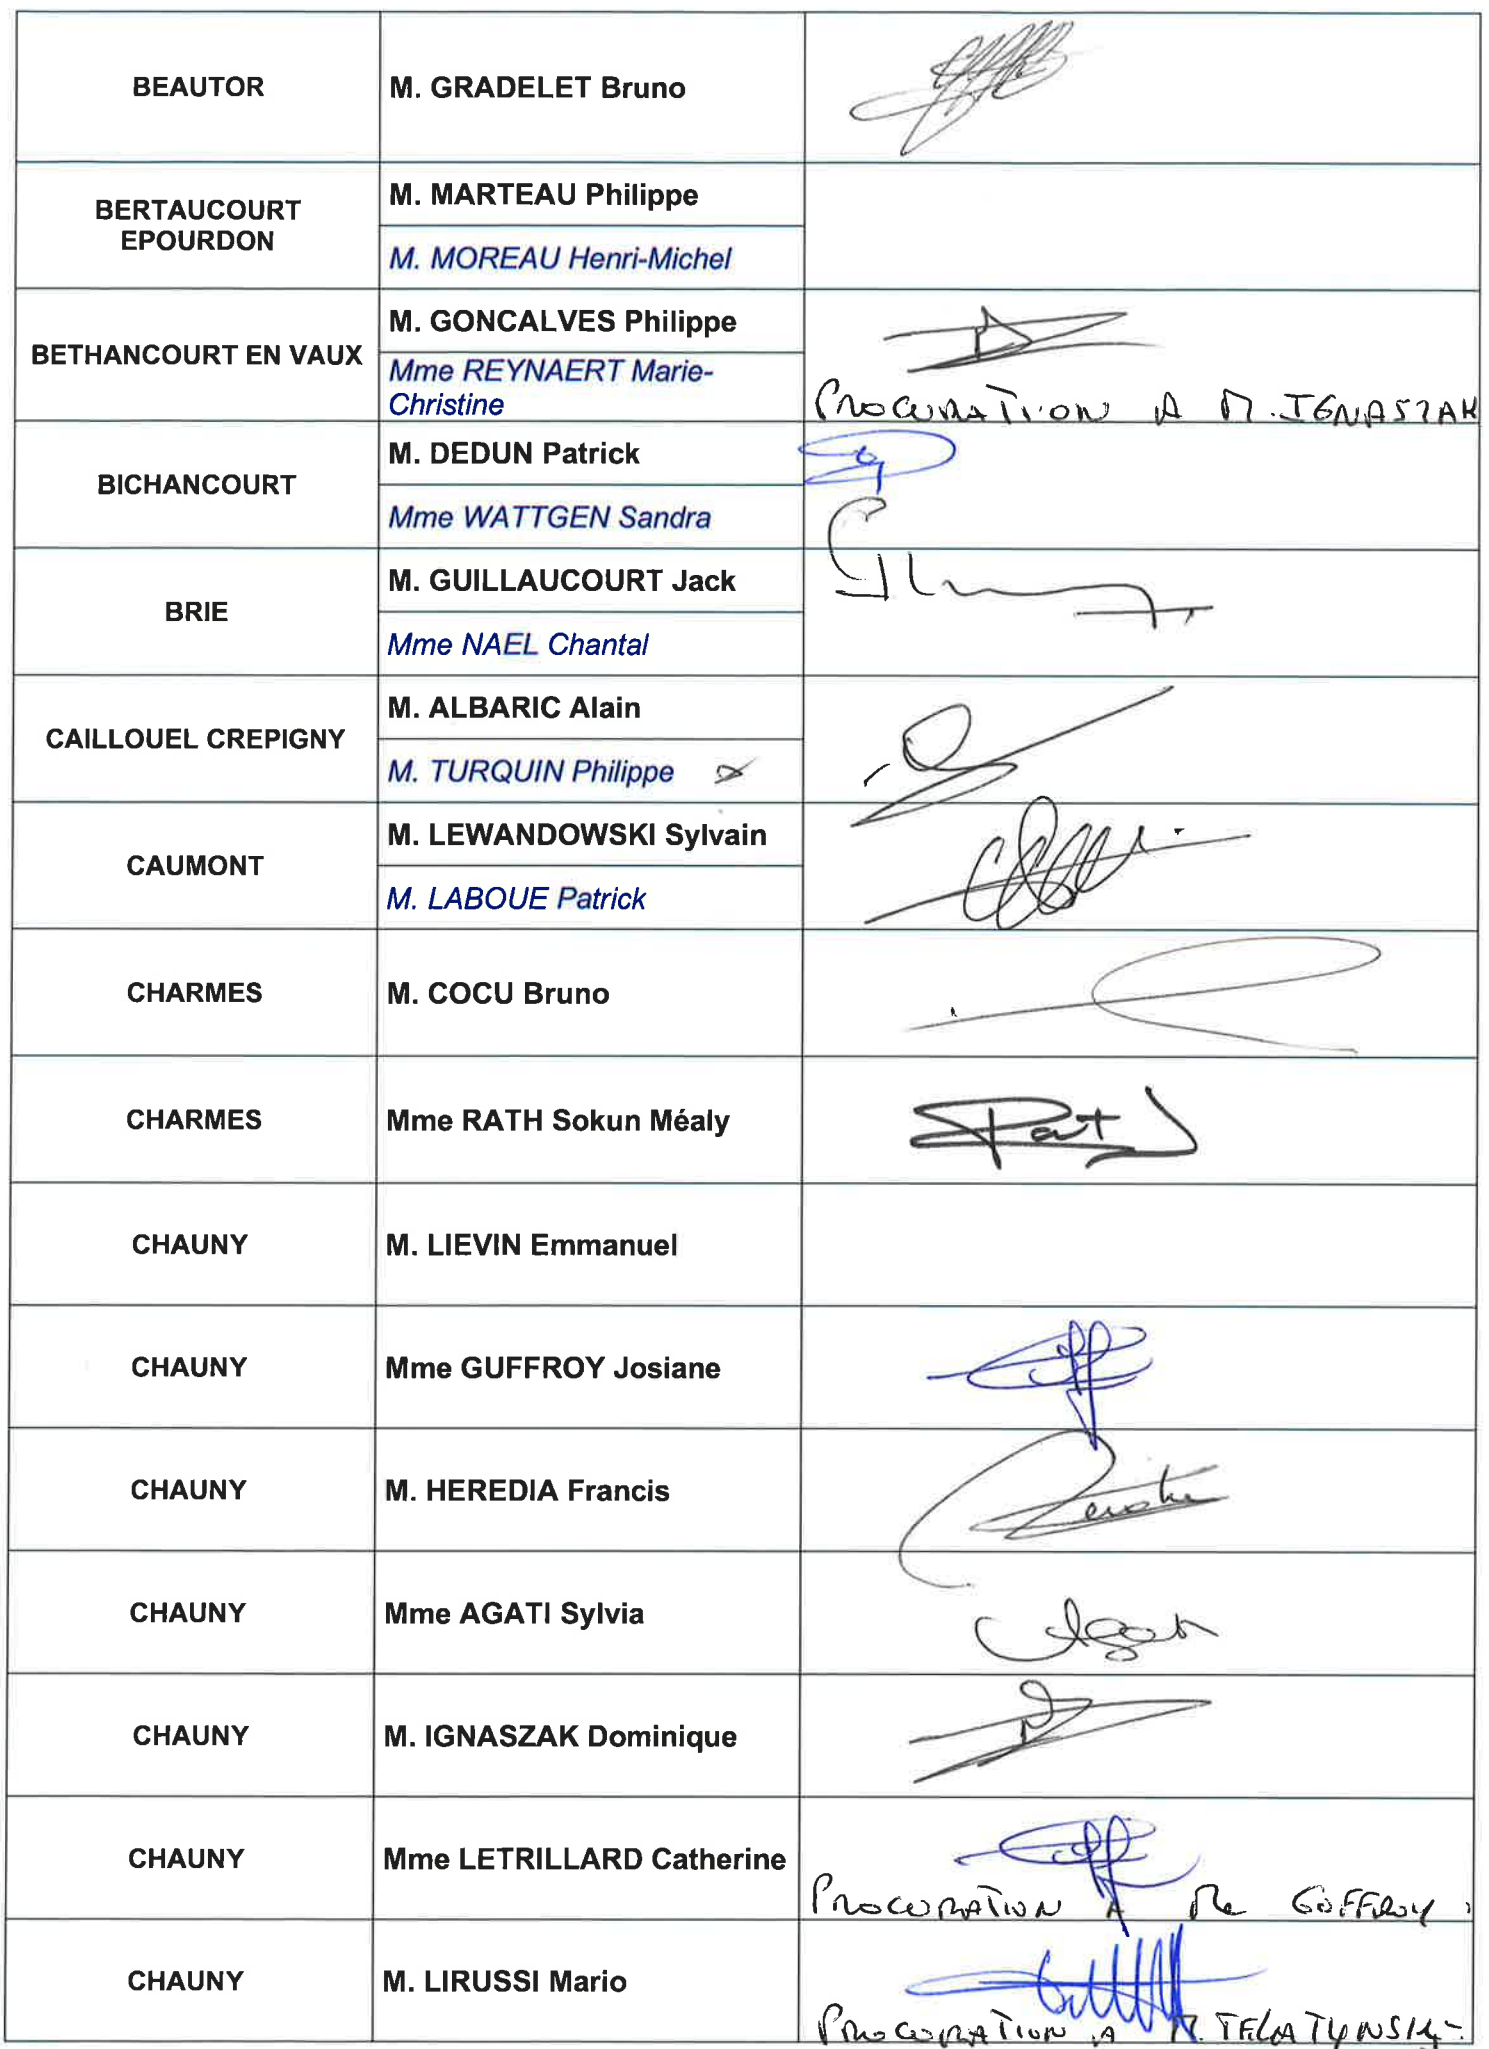 BEAUTOR
M. GRADELET Bruno
BERTAUCOURT
EPOURDON
M. MARTEAU Philippe
M. MOREAU Henri-Michel
BETHANCOURT EN VAUX
M. GONCALVES Philippe
Mme REYNAERT Marie-
Christine
PROCURATION A M. IGNASZAK
BICHANCOURT
M. DEDUN Patrick
Mme WATTGEN Sandra
BRIE
M. GUILLAUCOURT Jack
Mme NAEL Chantal
CAILLOUEL CREPIGNY
M. ALBARIC Alain
M. TURQUIN Philippe
CAUMONT
M. LEWANDOWSKI Sylvain
M. LABOUE Patrick
CHARMES
M. COCU Bruno
CHARMES
Mme RATH Sokun Méaly
CHAUNY
M. LIEVIN Emmanuel
CHAUNY
Mme GUFFROY Josiane
CHAUNY
M. HEREDIA Francis
CHAUNY
Mme AGATI Sylvia
CHAUNY
M. IGNASZAK Dominique
CHAUNY
Mme LETRILLARD Catherine
PROCURATION A Me GUFFROY
CHAUNY
M. LIRUSSI Mario
PROCURATION A M. TELATYNSKI